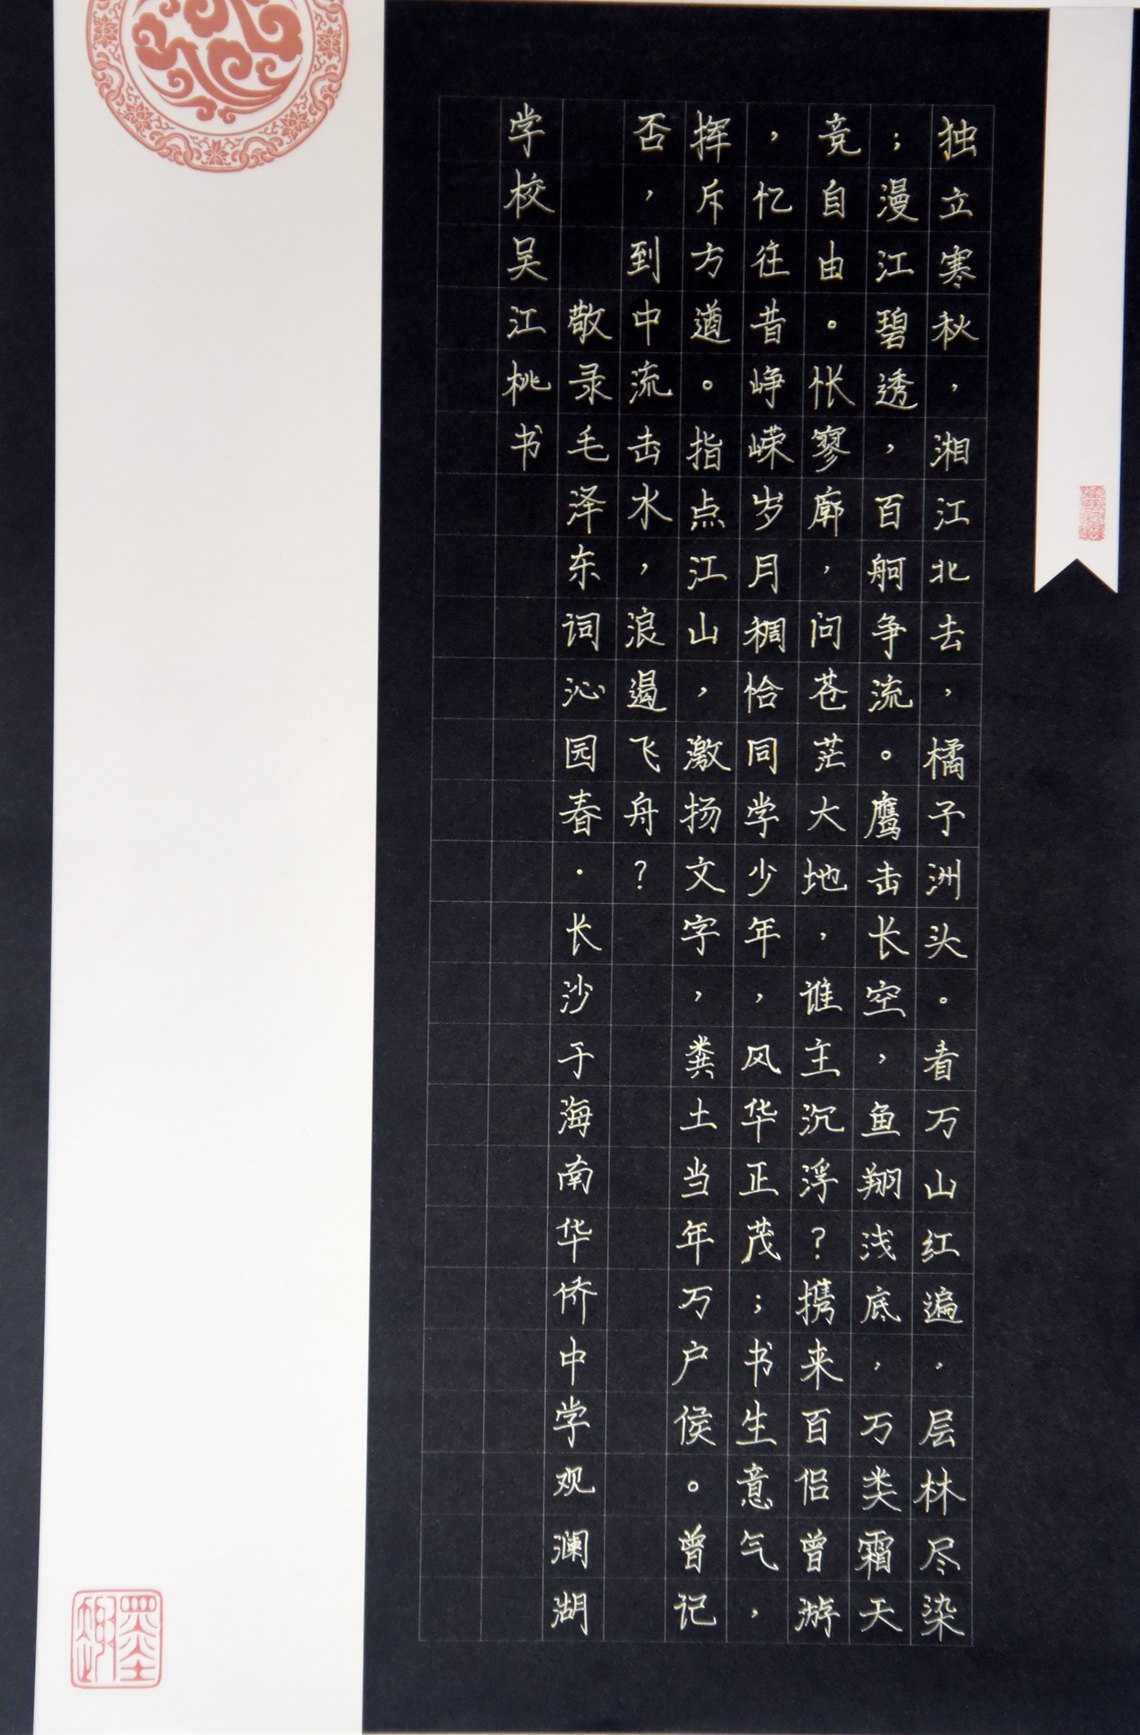 独立寒秋，湘江北去，橘子洲头。看万山红遍，层林尽染
；漫江碧透，百舸争流。鹰击长空，鱼翔浅底，万类霜天
竞自由。怅寥廓，问苍茫大地，谁主沉浮？携来百侣曾游
，忆往昔峥嵘岁月稠恰同学少年，风华正茂；书生意气，
挥斥方遒。指点江山，激扬文字，粪土当年万户侯。曾记
否，到中流击水，浪遏飞舟？
敬录毛泽东词沁园春·长沙于海南华侨中学观澜湖
学校吴江桃书
墨趣